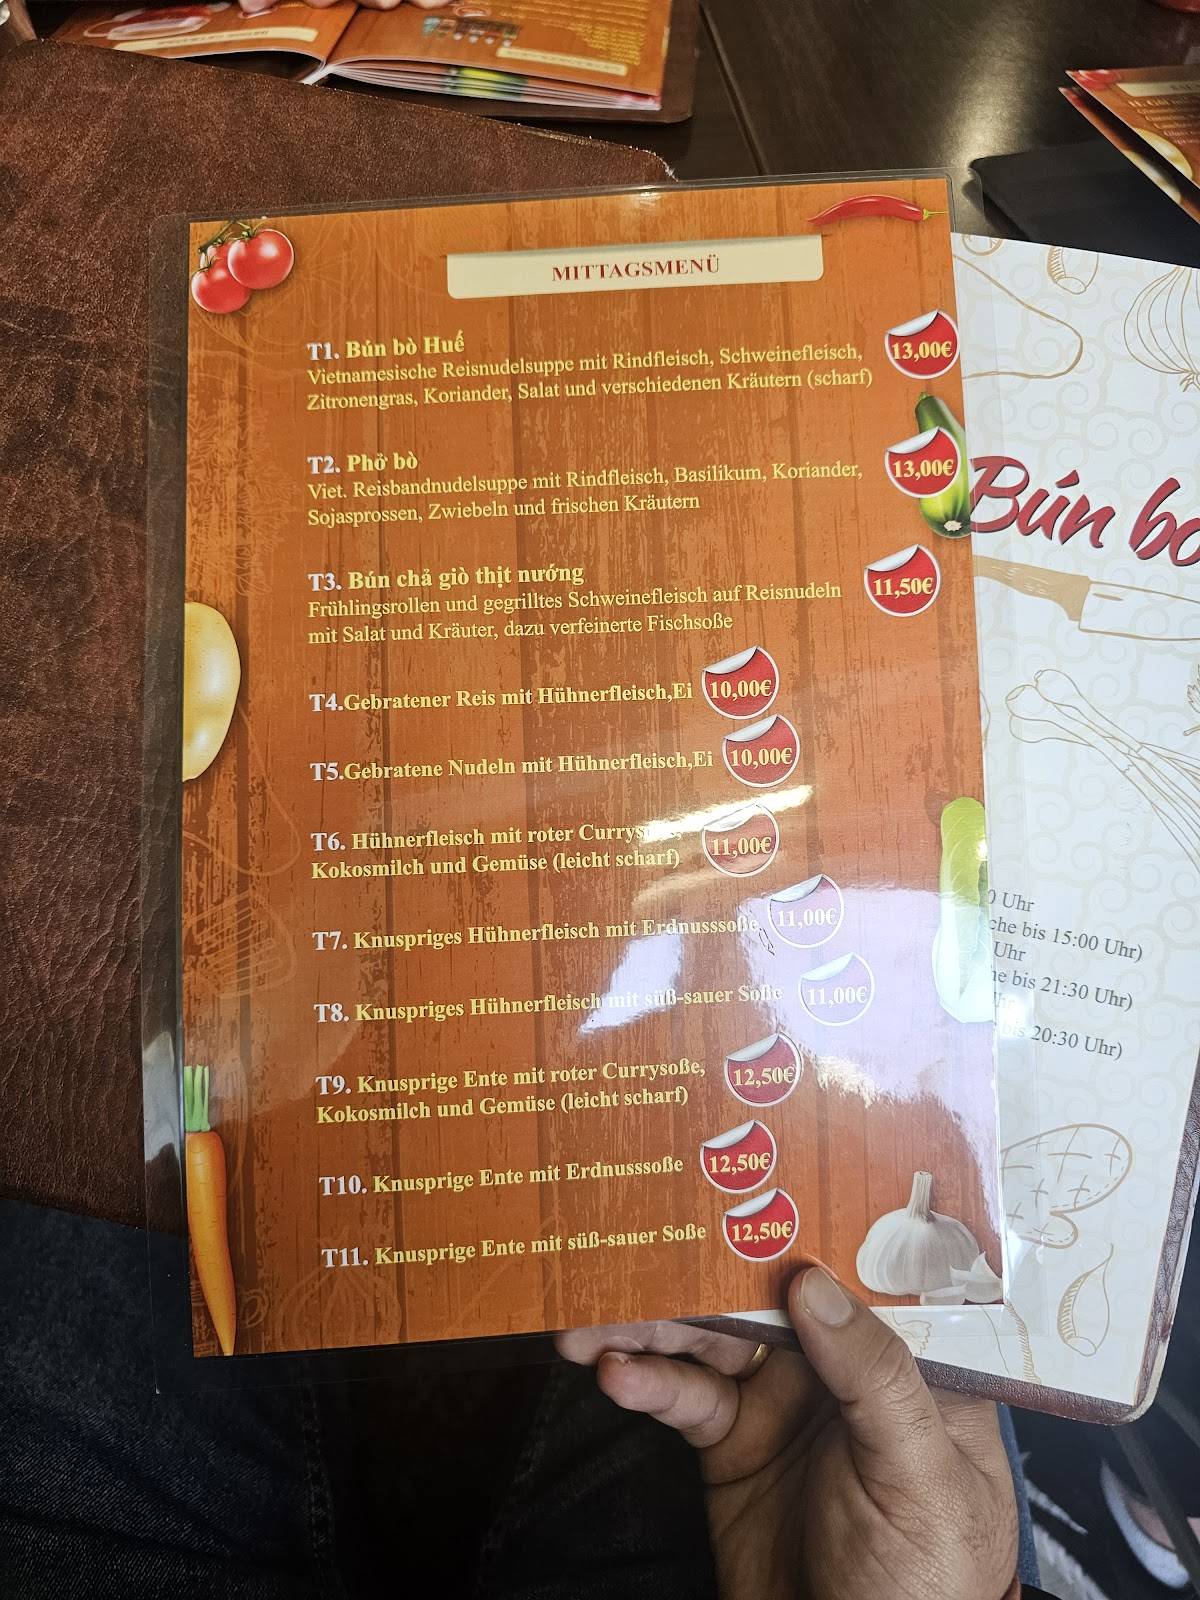 MITTAGSMENÜ
T1. Bún bò Huế
Vietnamesische Reisnudelsuppe mit Rindfleisch, Schweinefleisch,
Zitronengras, Koriander, Salat und verschiedenen Kräutern (scharf)
13,00€
T2. Phở bò
Viet. Reisbandnudelsuppe mit Rindfleisch, Basilikum, Koriander,
Sojasprossen, Zwiebeln und frischen Kräutern
13,00€
T3. Bún chả giò thịt nướng
Frühlingsrollen und gegrilltes Schweinefleisch auf Reisnudeln
mit Salat und Kräuter, dazu verfeinerte Fischsoße
11,50€
T4.Gebratener Reis mit Hühnerfleisch,Ei 10,00€
T5.Gebratene Nudeln mit Hühnerfleisch,Ei 10,00€
T6. Hühnerfleisch mit roter Currysoße,
Kokosmilch und Gemüse (leicht scharf)
11,00€
T7. Knuspriges Hühnerfleisch mit Erdnusssoße 11,00€
T8. Knuspriges Hühnerfleisch mit süß-sauer Soße 11,00€
T9. Knusprige Ente mit roter Currysoße,
Kokosmilch und Gemüse (leicht scharf)
12,50€
T10. Knusprige Ente mit Erdnusssoße 12,50€
T11. Knusprige Ente mit süß-sauer Soße 12,50€
Bún bò
0 Uhr
che bis 15:00 Uhr)
Uhr
he bis 21:30 Uhr)
Uhr
bis 20:30 Uhr)